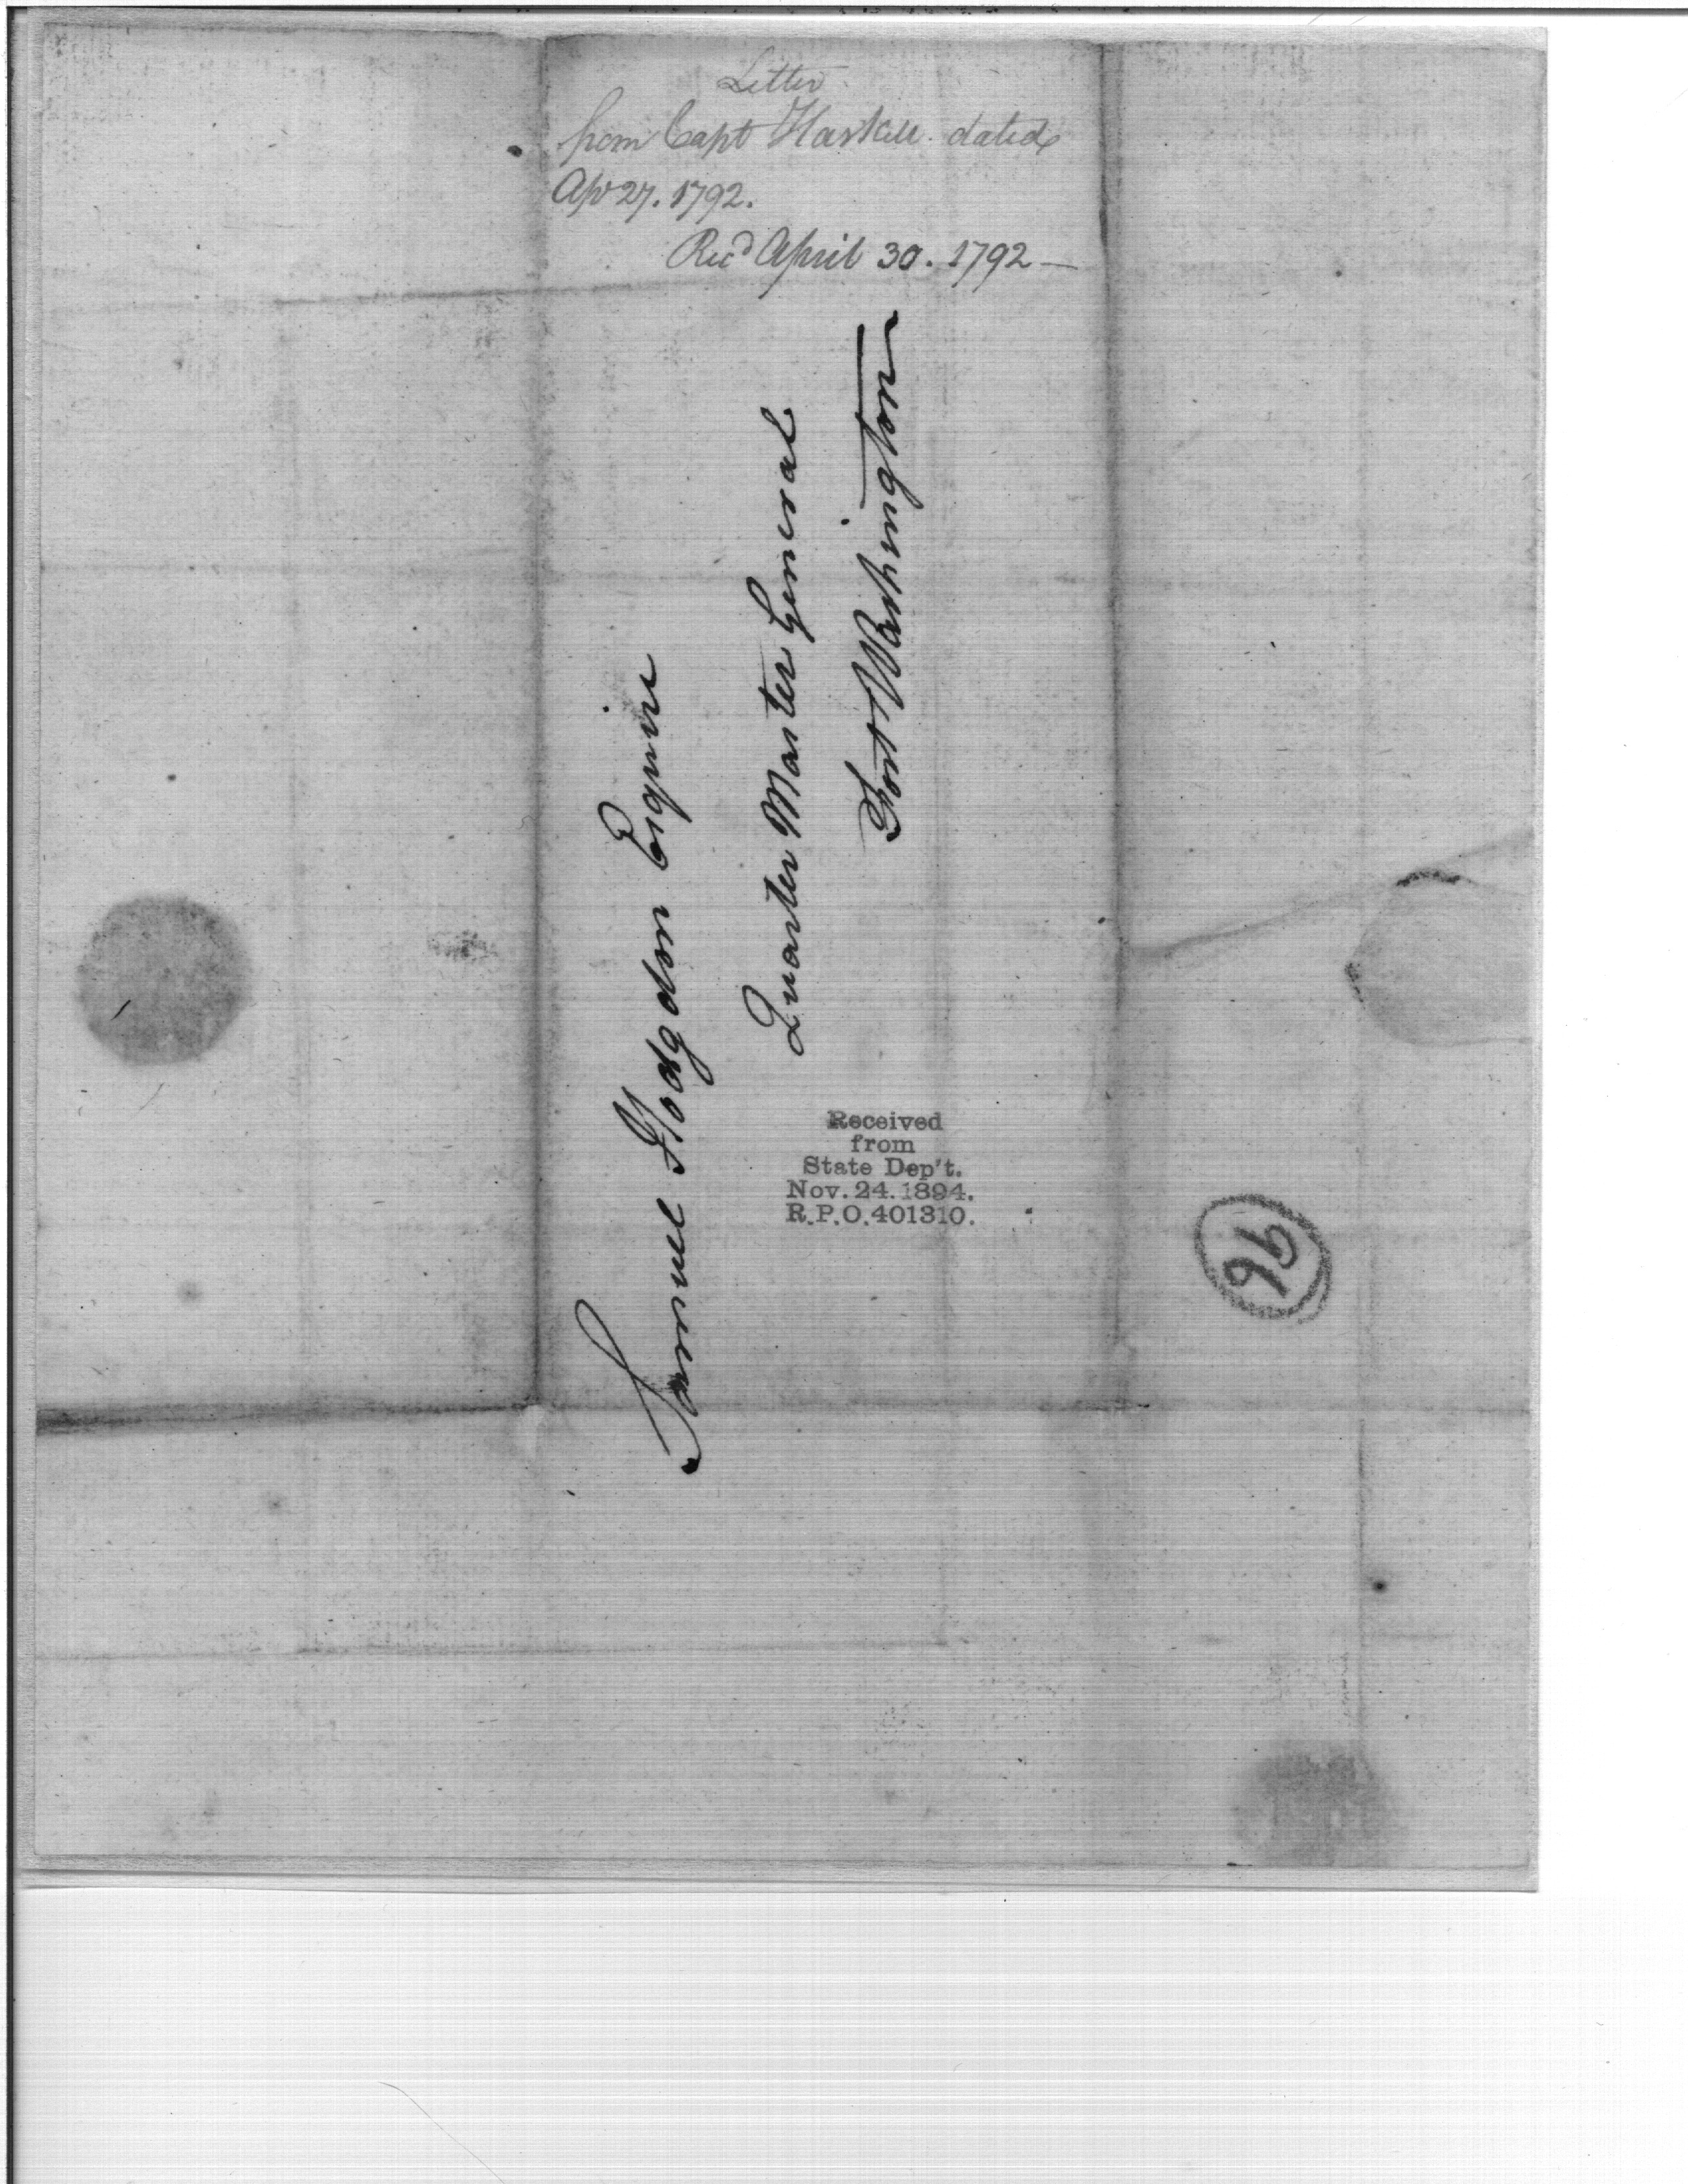 Letter
from Capt Haskell dated
Apr 27. 1792.
Recd April 30. 1792 —
Samuel Hodgdon Esquire
Quarter Master General
Fort Washington
Received
from
State Dep't.
Nov. 24. 1894.
R.P.O. 401310.
96